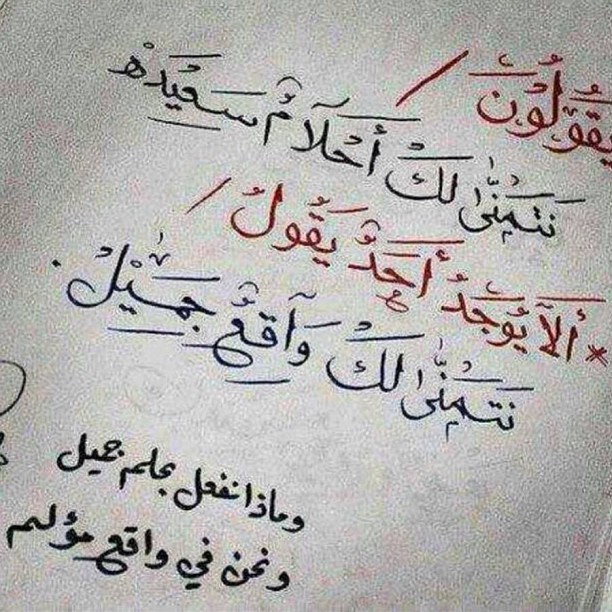 يَقُولُونَ /
نَتَمَنَّى لَكَ أَحْلَامٌ سَعِيْدَهْ
* أَلَا يُوجَدُ أَحَدٌ يَقُولُ /
نَتَمَنَّى لَكَ وَاقِعٌ جَمِيْلٌ .
وماذا نفعل بحلم جميل
ونحن في واقع مؤلم